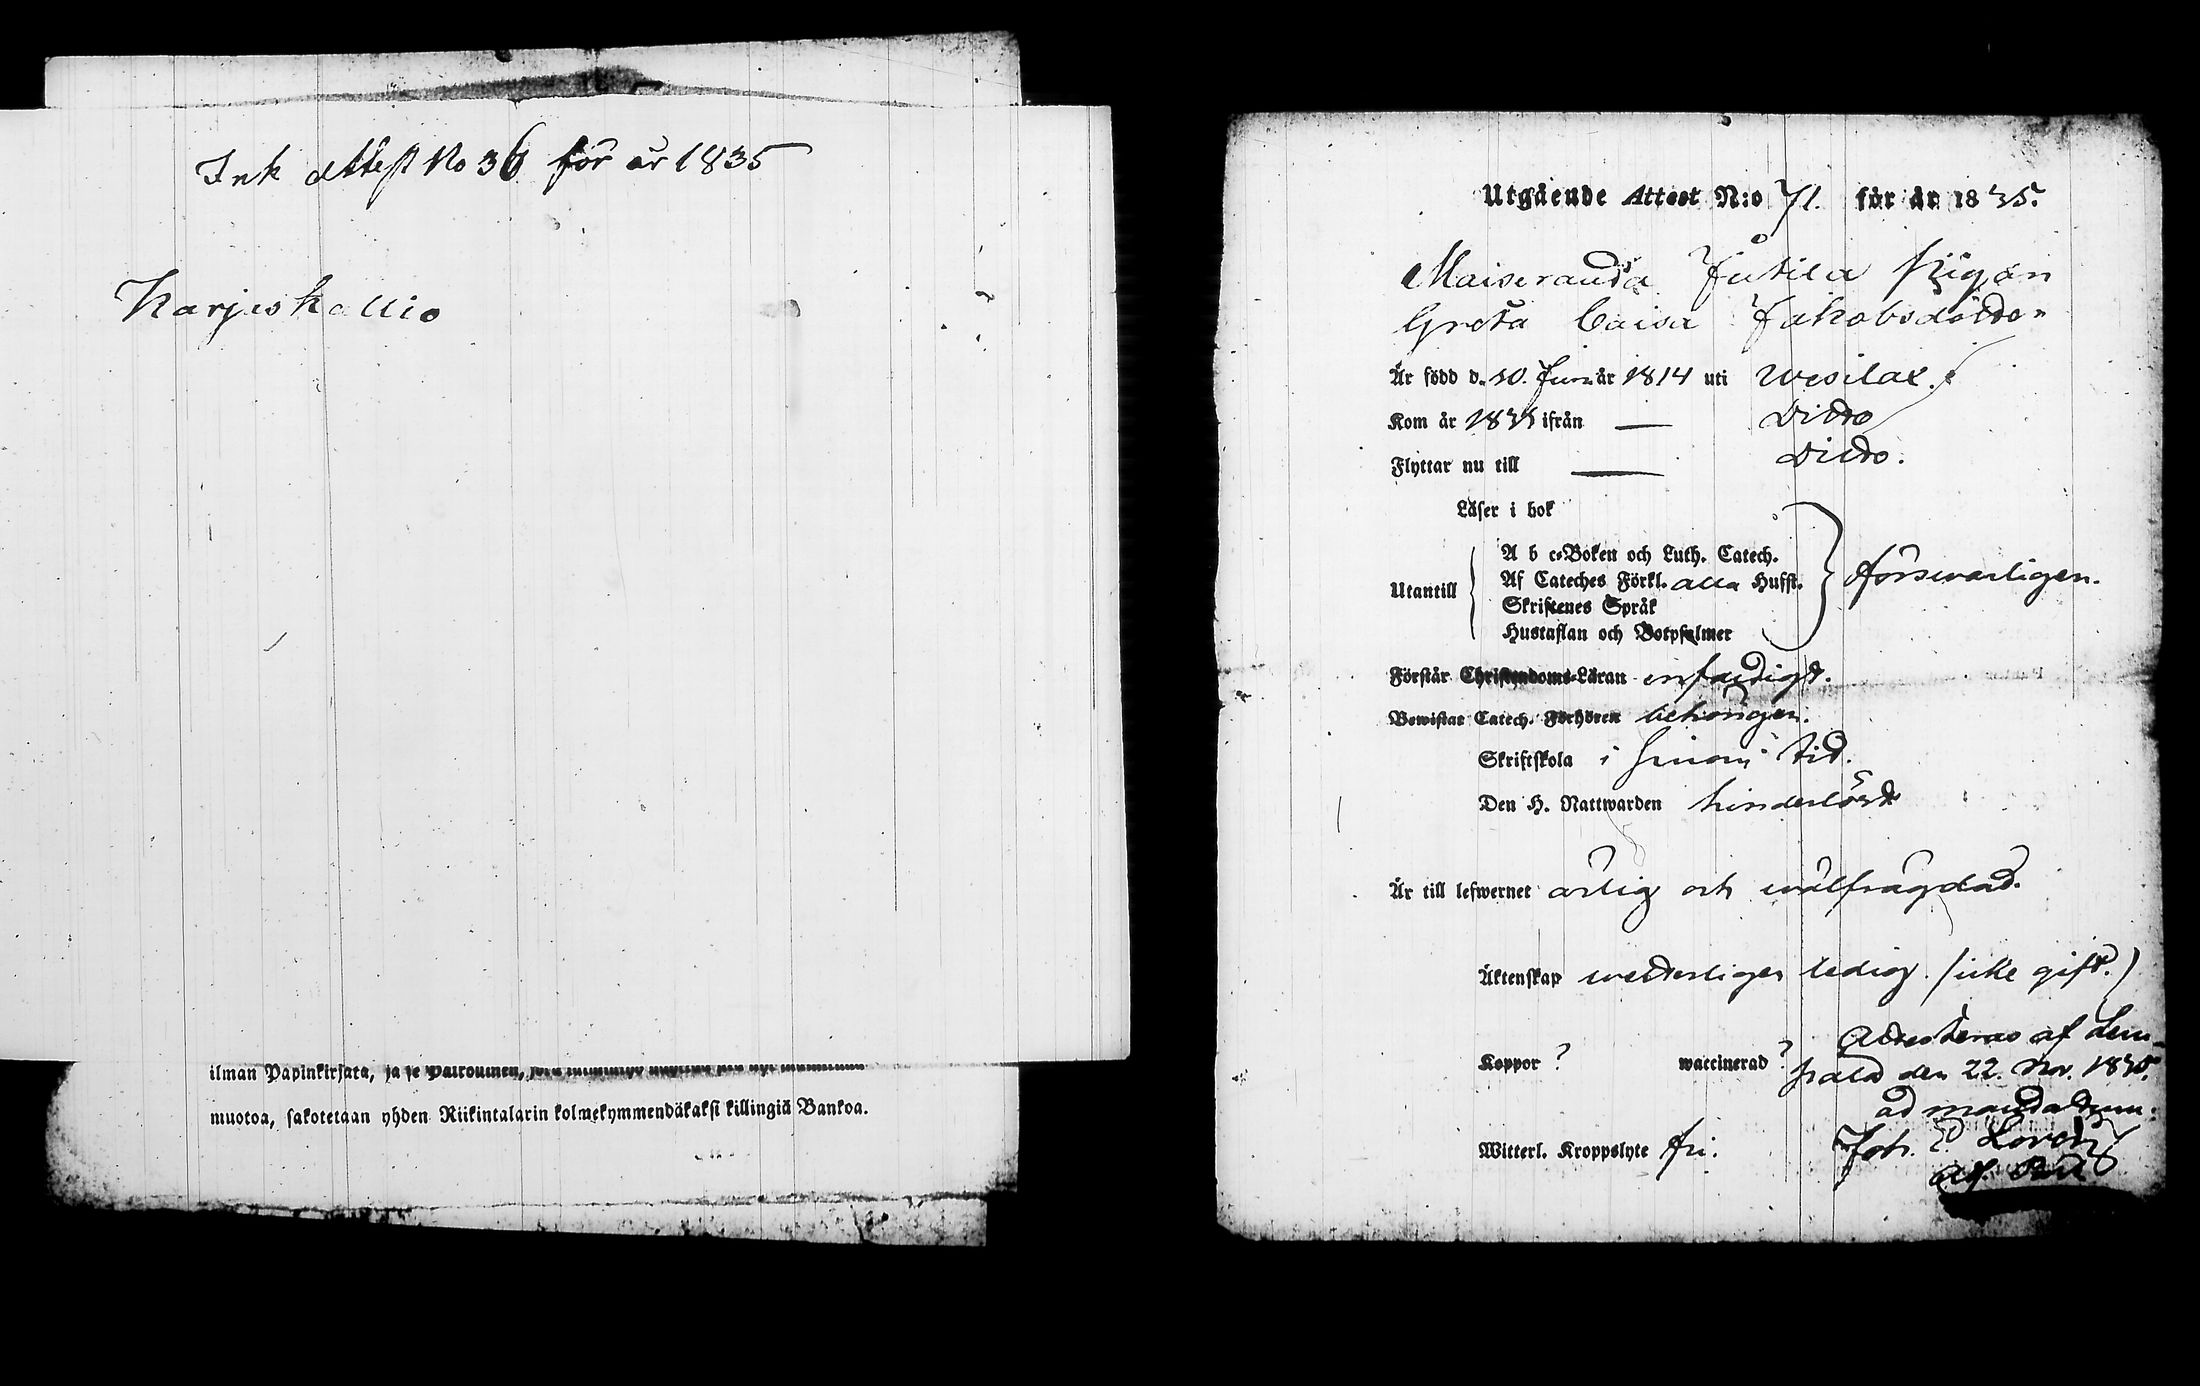 Ink Attest No 36 för år 1835
Karjuskallio
ilman Papinkirjata, ja se
muotoa, sakotetaan yhden Riikintalarin kolmekymmendäkaksi killingiä Bankoa.
Utgående Attest N:o 71. för år 1835.
Maiseranda Jutila Pigan
Greta Caisa Jakobsdotter
Är född d. 10. Juni år 1814 uti Wesilax.
Kom år 1835 ifrån — Ditto
Flyttar nu till — Ditto.
Läser i bok
Utantill
A b c-Boken och Luth. Catech.
Af Cateches Förkl. alla Hufst.
Skriftenes Språk
Hustaflan och Botpsalmer
försvarligen.
Förstår Christendoms-Läran enfaldigt.
Bewistat Catech. Förhören behörigen.
Skriftskola i sinom tid.
Den H. Nattwarden hinderlöst
Är till lefwernet ärlig och wälfrägdad.
Äktenskap ledig. (icke gift.)
Koppor ? waccinerad ?
Attesteras af Lem-
pala den 22. Nov. 1835.
ad mandatum.
Witterl. Kroppslyte fri.
Joh. E.